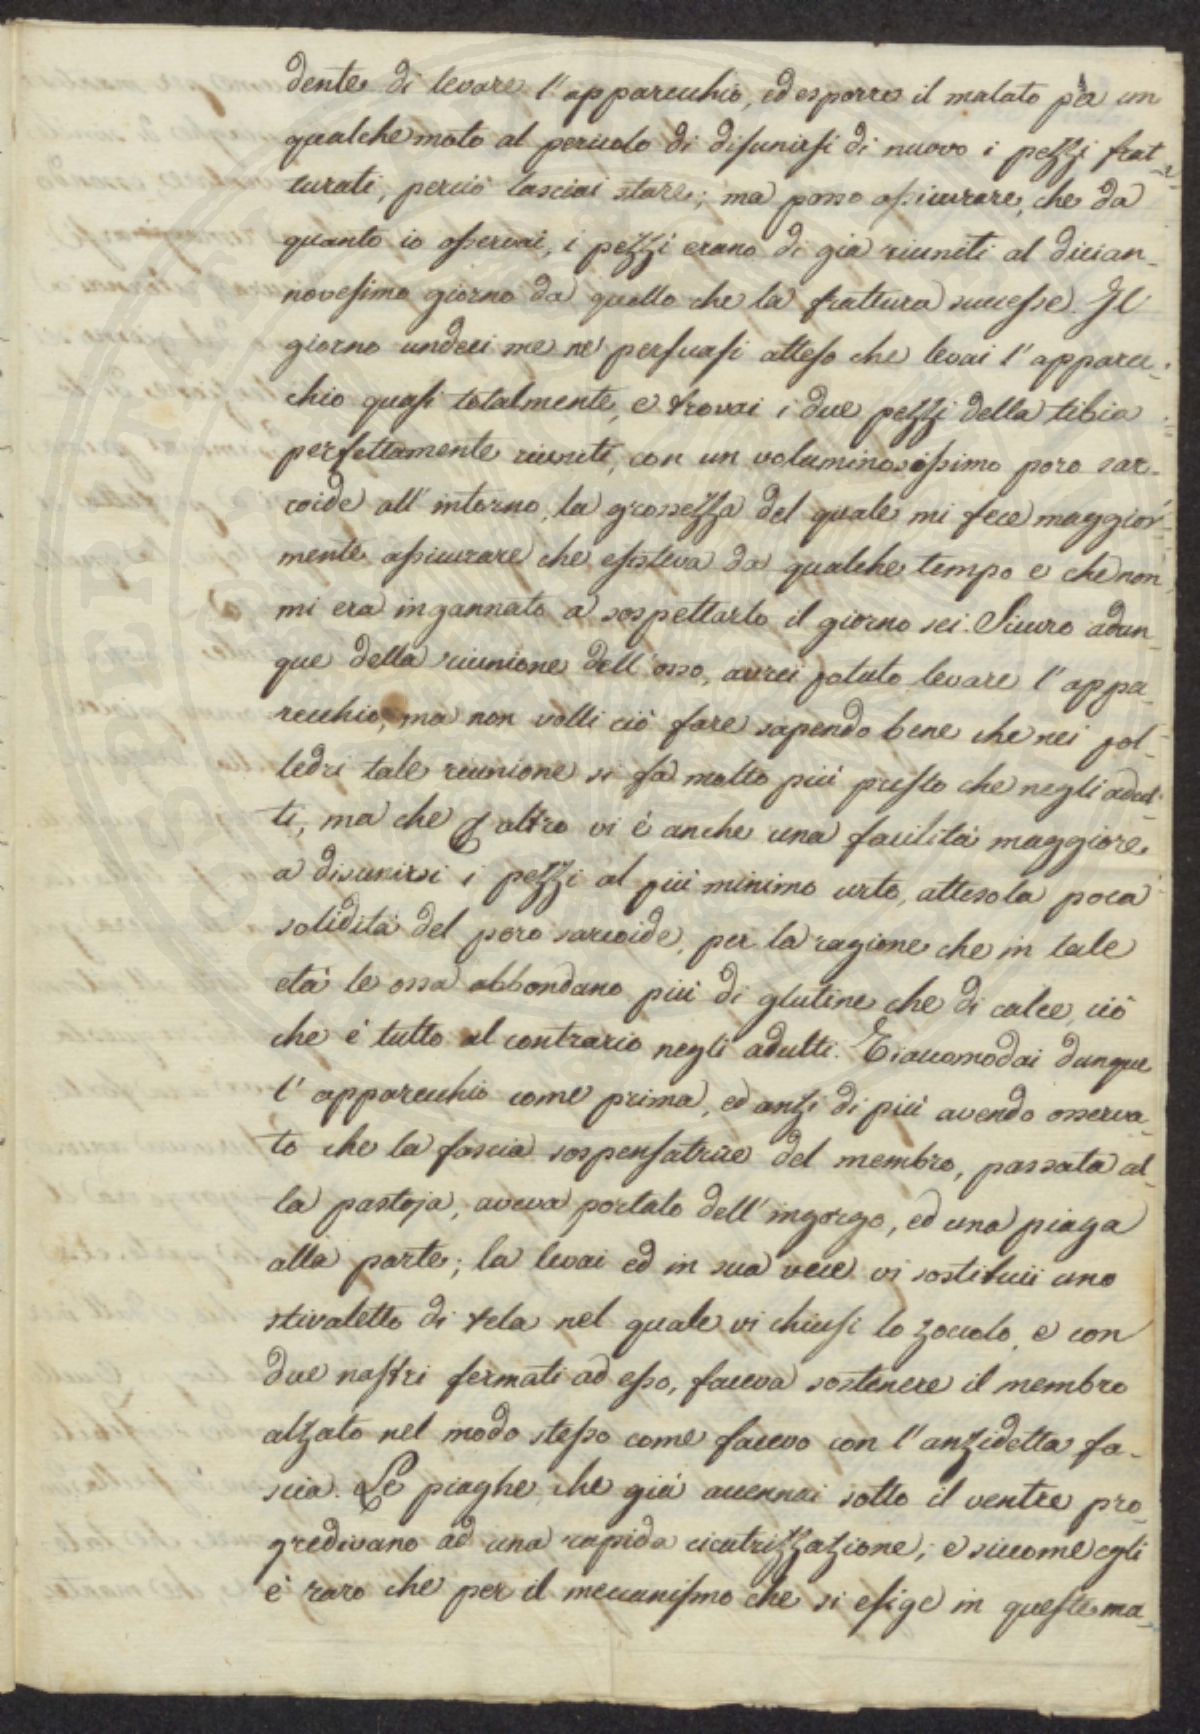 dente di levare l'apparecchio, ed esporre il malato per un
qualche moto al pericolo di disunirsi di nuovo i pezzi frat-
turati, perciò lasciai stare; ma posso assicurare, che da
quanto io osservai, i pezzi erano di già riuniti al dician-
novesimo giorno da quello che la frattura successe. Il
giorno undeci me ne persuasi atteso che levai l'apparec-
chio quasi totalmente, e trovai i due pezzi della tibia
perfettamente riuniti, con un voluminosissimo poro sar-
coide all'intorno, la grossezza del quale mi fece maggior-
mente assicurare che essisteva da qualche tempo e che non
mi era ingannato a sospettarlo il giorno sei. Sicuro adun-
que della riunione dell'osso, avrei potuto levare l'appa-
recchio, ma non volli ciò fare sapendo bene che nei pol-
ledri tale riunione si fà molto più presto che negli adul-
ti, ma che altro vi è anche una facilità maggiore
a disunirsi i pezzi al più minimo urto, attesola poca
solidità del poro sarcoide, per la ragione che in tale
età le ossa abbondano più di glutine che di calce, ciò
che è tutto al contrario negli adulti. Riaccomodai dunque
l'apparecchio come prima, ed anzi di più avendo osserva-
to che la fascia sospensatrice del membro, passata al-
la pastoja, aveva portato dell'ingorgo, ed una piaga
alla parte; la levai ed in sua vece vi sostituii uno
stivaletto di tela nel quale vi chiusi lo zoccolo, e con
due nastri fermati ad esso, faceva sostenere il membro
alzato nel modo stesso come facevo con l'anzidetta fa-
scia. Le piaghe che già accennai sotto il ventre pro-
gredivano ad una rapida cicatrizzazione; e siccome egli
è raro che per il meccanismo che si esige in queste ma-